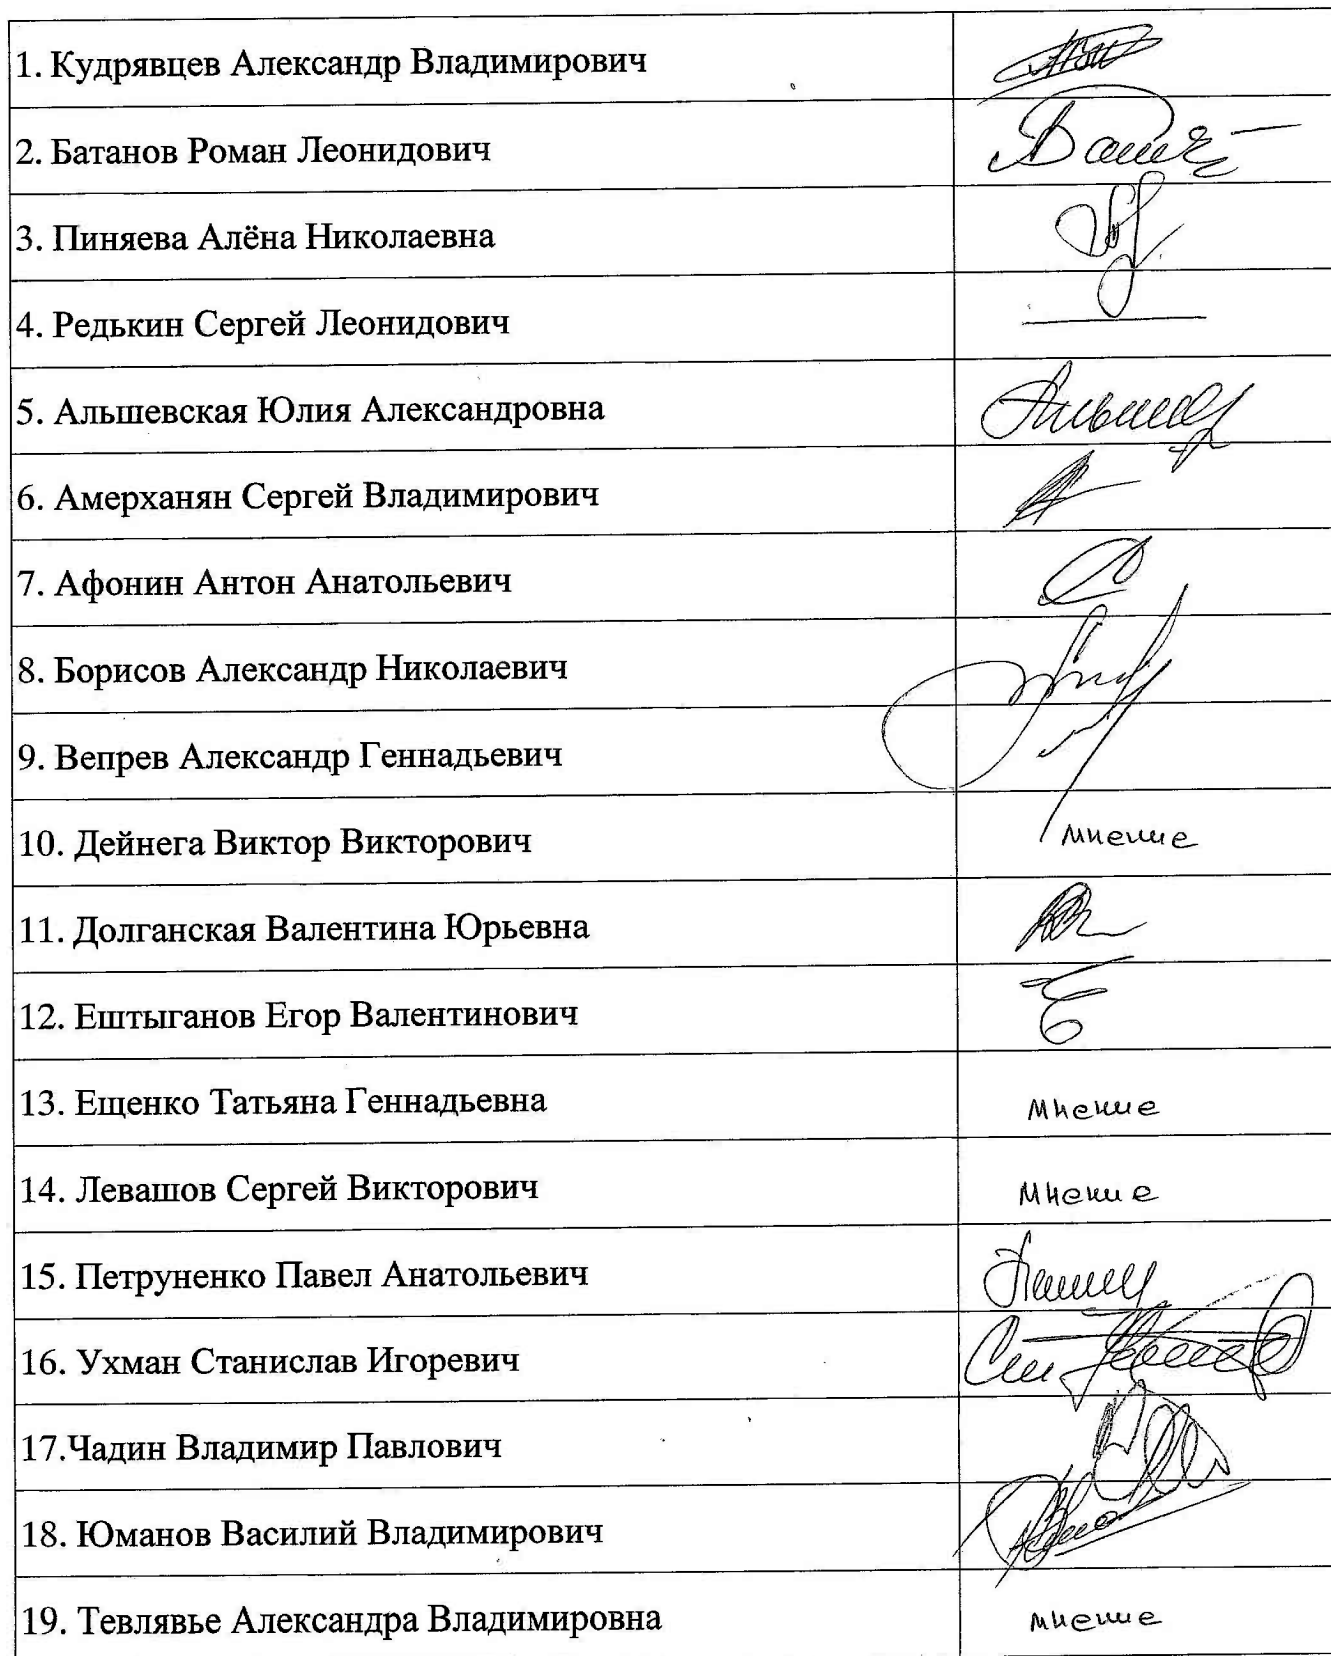 1. Кудрявцев Александр Владимирович
2. Батанов Роман Леонидович
3. Пиняева Алёна Николаевна
4. Редькин Сергей Леонидович
5. Альшевская Юлия Александровна
6. Амерханян Сергей Владимирович
7. Афонин Антон Анатольевич
8. Борисов Александр Николаевич
9. Вепрев Александр Геннадьевич
10. Дейнега Виктор Викторович мнение
11. Долганская Валентина Юрьевна
12. Ештыганов Егор Валентинович
13. Ещенко Татьяна Геннадьевна мнение
14. Левашов Сергей Викторович мнение
15. Петруненко Павел Анатольевич
16. Ухман Станислав Игоревич
17.Чадин Владимир Павлович
18. Юманов Василий Владимирович
19. Тевлявье Александра Владимировна мнение